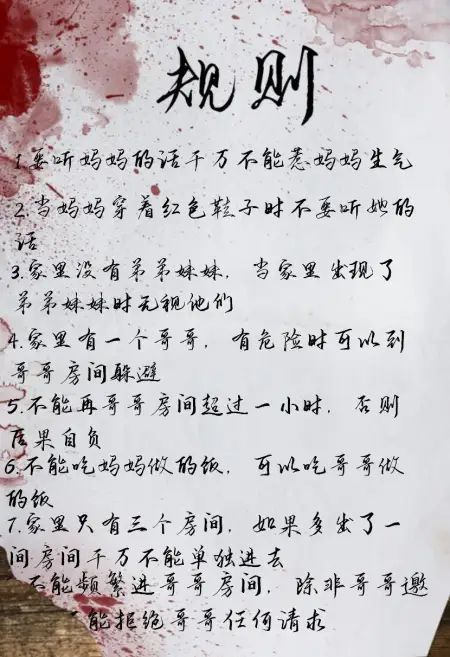 规则
1.要听妈妈的话千万不能惹妈妈生气
2.当妈妈穿着红色鞋子时不要听她的
话
3.家里没有弟弟妹妹，当家里出现了
弟弟妹妹时无视他们
4.家里有一个哥哥，有危险时可以到
哥哥房间躲避
5.不能再哥哥房间超过一小时，否则
后果自负
6.不能吃妈妈做的饭，可以吃哥哥做
的饭
7.家里只有三个房间，如果多出了一
间房间千万不能单独进去
不能频繁进哥哥房间，除非哥哥邀
能拒绝哥哥任何请求